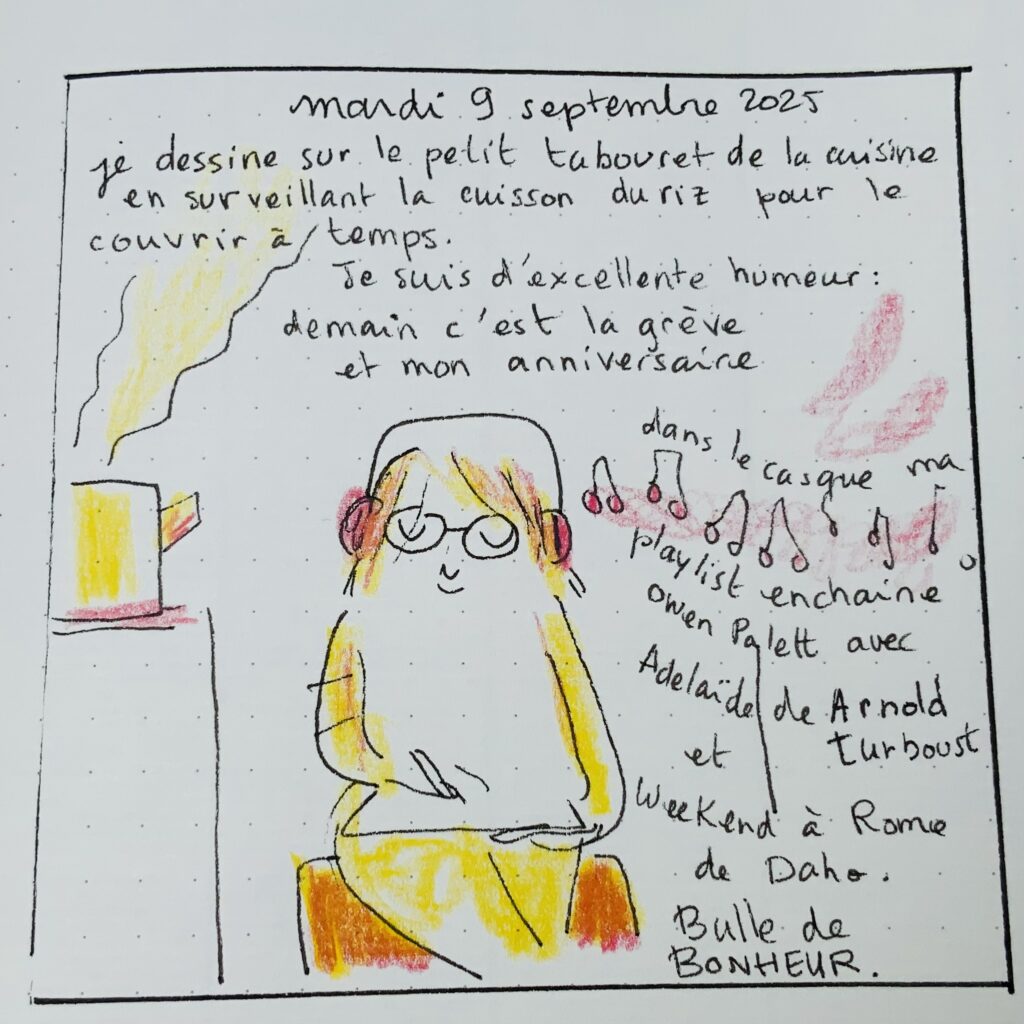 mardi 9 septembre 2025
je dessine sur le petit tabouret de la cuisine
en surveillant la cuisson du riz pour le
couvrir à temps.
Je suis d'excellente humeur :
demain c'est la grève
et mon anniversaire
dans le casque ma
playlist enchaine
owen Palett avec
Adelaïde de Arnold
Turboust
et
Weekend à Rome
de Daho.
Bulle de
BONHEUR.